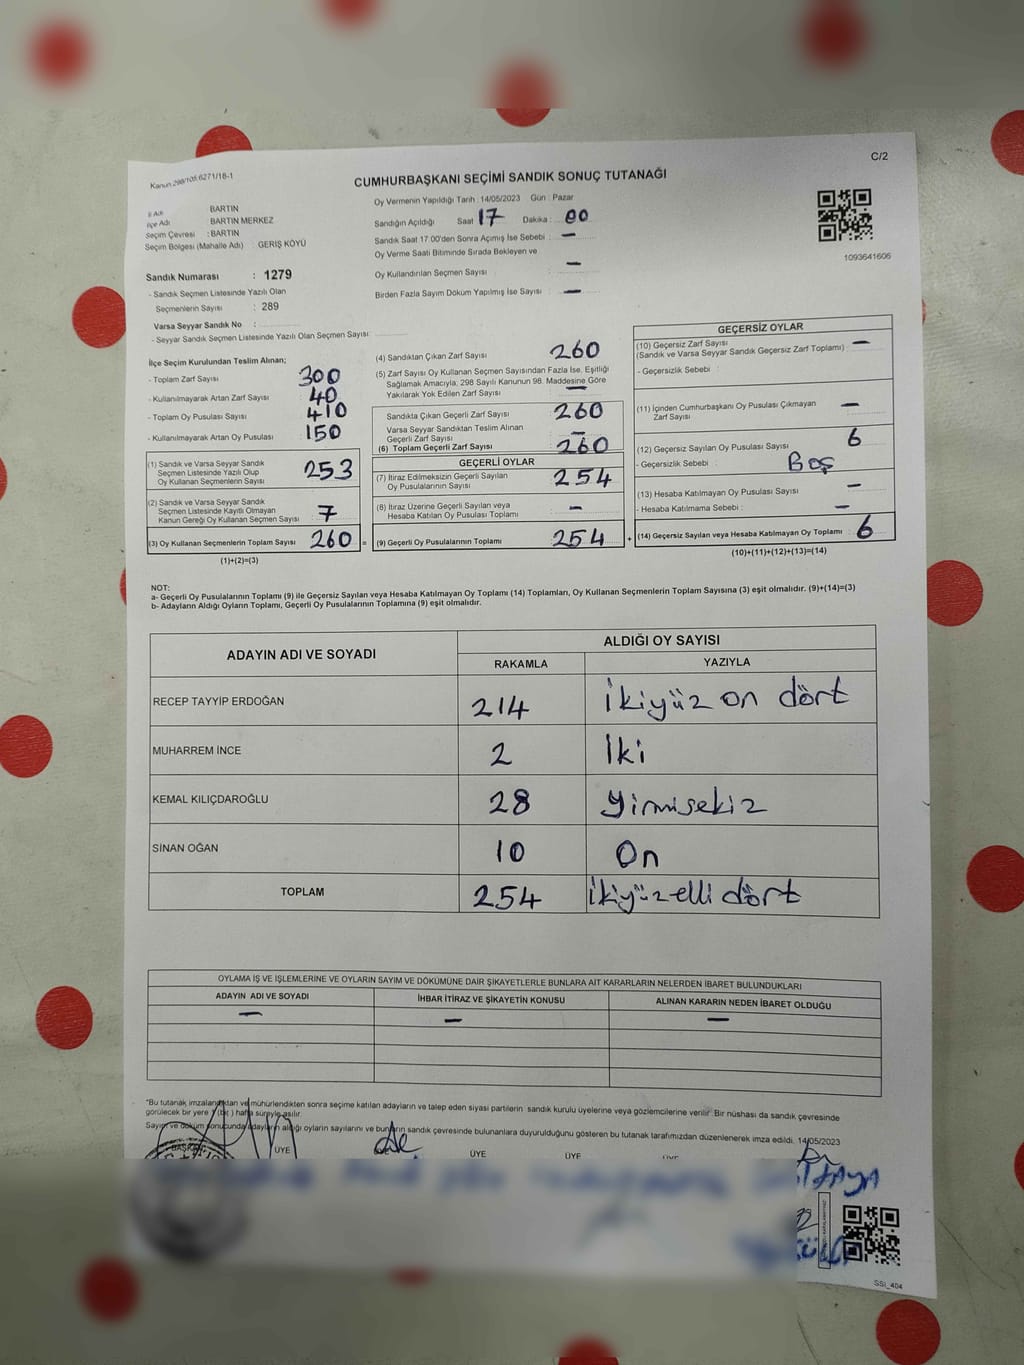 C/2
Kanun.298/105.6271/18-1
CUMHURBAŞKANI SEÇİMİ SANDIK SONUÇ TUTANAĞI
İl Adı BARTIN
İlçe Adı BARTIN MERKEZ
Seçim Çevresi : BARTIN
Seçim Bölgesi (Mahalle Adı) : GERİŞ KÖYÜ
Sandık Numarası : 1279
- Sandık Seçmen Listesinde Yazılı Olan
Seçmenlerin Sayısı : 289
Varsa Seyyar Sandık No :
- Seyyar Sandık Seçmen Listesinde Yazılı Olan Seçmen Sayısı:
Oy Vermenin Yapıldığı Tarih :14/05/2023 Gün : Pazar
Sandığın Açıldığı Saat : 17 Dakika : 00
Sandık Saat 17:00'den Sonra Açımış İse Sebebi : –
Oy Verme Saati Bitiminde Sırada Bekleyen ve
Oy Kullandırılan Seçmen Sayısı : –
Birden Fazla Sayım Döküm Yapılmış İse Sayısı : –
1093641606
İlçe Seçim Kurulundan Teslim Alınan;
- Toplam Zarf Sayısı : 300
- Kullanılmayarak Artan Zarf Sayısı : 40
- Toplam Oy Pusulası Sayısı : 410
- Kullanılmayarak Artan Oy Pusulası : 150
(1) Sandık ve Varsa Seyyar Sandık
Seçmen Listesinde Yazılı Olup
Oy Kullanan Seçmenlerin Sayısı 253
(2) Sandık ve Varsa Seyyar Sandık
Seçmen Listesinde Kayıtlı Olmayan
Kanun Gereği Oy Kullanan Seçmen Sayısı 7
(3) Oy Kullanan Seçmenlerin Toplam Sayısı 260 =
(1)+(2)=(3)
(4) Sandıktan Çıkan Zarf Sayısı 260
(5) Zarf Sayısı Oy Kullanan Seçmen Sayısından Fazla İse, Eşitliği
Sağlamak Amacıyla; 298 Sayılı Kanunun 98. Maddesine Göre
Yakılarak Yok Edilen Zarf Sayısı –
Sandıkta Çıkan Geçerli Zarf Sayısı 260
Varsa Seyyar Sandıktan Teslim Alınan
Geçerli Zarf Sayısı –
(6) Toplam Geçerli Zarf Sayısı 260
GEÇERLİ OYLAR
(7) İtiraz Edilmeksizin Geçerli Sayılan
Oy Pusulalarının Sayısı 254
(8) İtiraz Üzerine Geçerli Sayılan veya
Hesaba Katılan Oy Pusulası Toplamı –
(9) Geçerli Oy Pusulalarının Toplamı 254 +
GEÇERSİZ OYLAR
(10) Geçersiz Zarf Sayısı –
(Sandık ve Varsa Seyyar Sandık Geçersiz Zarf Toplamı)
- Geçersizlik Sebebi :
(11) İçinden Cumhurbaşkanı Oy Pusulası Çıkmayan
Zarf Sayısı –
(12) Geçersiz Sayılan Oy Pusulası Sayısı 6
- Geçersizlik Sebebi : Boş
(13) Hesaba Katılmayan Oy Pusulası Sayısı –
- Hesaba Katılmama Sebebi : –
(14) Geçersiz Sayılan veya Hesaba Katılmayan Oy Toplamı 6
(10)+(11)+(12)+(13)=(14)
NOT:
a- Geçerli Oy Pusulalarının Toplamı (9) ile Geçersiz Sayılan veya Hesaba Katılmayan Oy Toplamı (14) Toplamları, Oy Kullanan Seçmenlerin Toplam Sayısına (3) eşit olmalıdır. (9)+(14)=(3)
b- Adayların Aldığı Oyların Toplamı, Geçerli Oy Pusulalarının Toplamına (9) eşit olmalıdır.
ADAYIN ADI VE SOYADI ALDIĞI OY SAYISI
RAKAMLA YAZIYLA
RECEP TAYYİP ERDOĞAN 214 İkiyüz on dört
MUHARREM İNCE 2 İki
KEMAL KILIÇDAROĞLU 28 Yirmisekiz
SİNAN OĞAN 10 On
TOPLAM 254 İkiyüzelli dört
OYLAMA İŞ VE İŞLEMLERİNE VE OYLARIN SAYIM VE DÖKÜMÜNE DAİR ŞİKAYETLERLE BUNLARA AİT KARARLARIN NELERDEN İBARET BULUNDUKLARI
ADAYIN ADI VE SOYADI İHBAR İTİRAZ VE ŞİKAYETİN KONUSU ALINAN KARARIN NEDEN İBARET OLDUĞU
– – –
*Bu tutanak imzalandıktan ve mühürlendikten sonra seçime katılan adayların ve talep eden siyasi partilerin sandık kurulu üyelerine veya gözlemcilerine verilir. Bir nüshası da sandık çevresinde
görülecek bir yere 1 (bir) hafta süreyle asılır.
Sayım ve döküm sonucunda adayların aldığı oyların sayılarını ve bunların sandık çevresinde bulunanlara duyurulduğunu gösteren bu tutanak tarafımızdan düzenlenerek imza edildi. 14/05/2023
BAŞKAN ÜYE ÜYE ÜYE ÜYE
SSİ_404